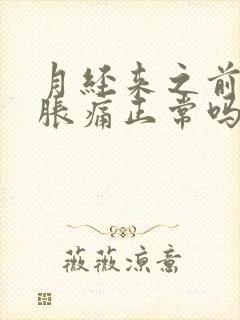 月经来之前
胀痛正常吗
薇薇凉意